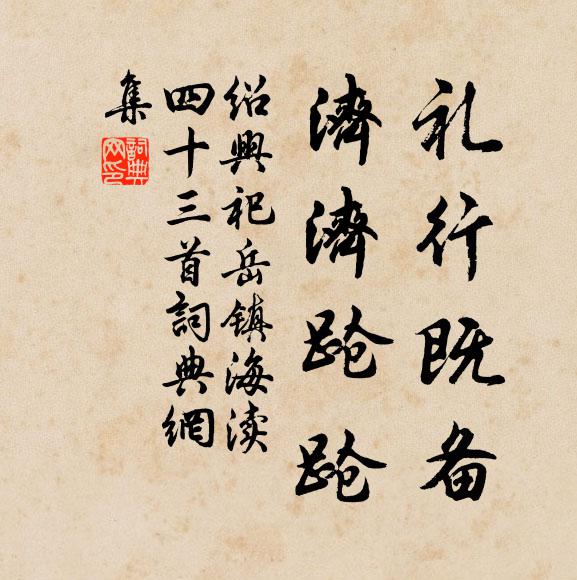 礼行既备
濟濟跄跄
绍興祀岳镇海渎
四十三首詞典網
集
詞典網印